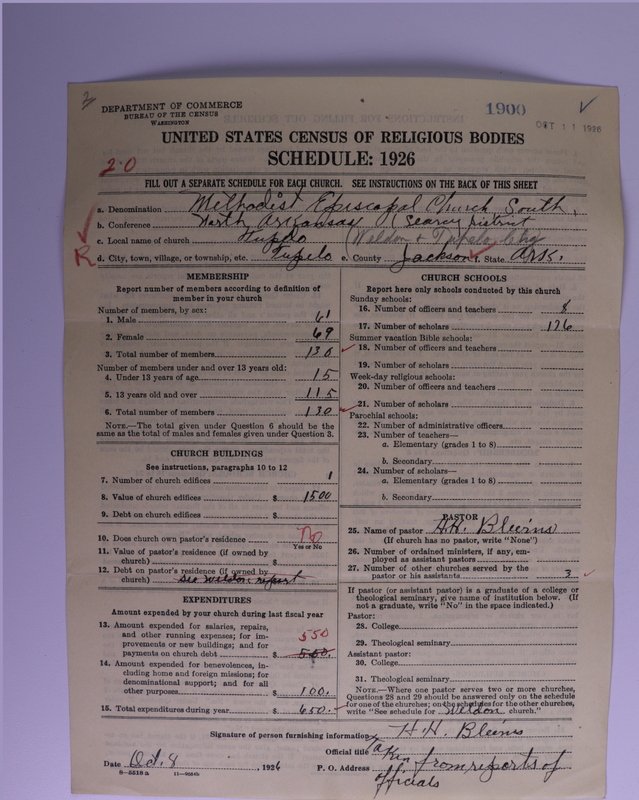 2
DEPARTMENT OF COMMERCE
BUREAU OF THE CENSUS
WASHINGTON
1900
OCT 11 1926
UNITED STATES CENSUS OF RELIGIOUS BODIES
SCHEDULE: 1926
2-0
FILL OUT A SEPARATE SCHEDULE FOR EACH CHURCH. SEE INSTRUCTIONS ON THE BACK OF THIS SHEET
a. Denomination Methodist Episcopal Church South,
b. Conference North Arkansas (Searcy District
c. Local name of church Tupelo (Weldon & Tupelo, Chg
R d. City, town, village, or township, etc. Tupelo e. County Jackson f. State Ark.
MEMBERSHIP
Report number of members according to definition of
member in your church
Number of members, by sex:
1. Male 61
2. Female 69
3. Total number of members 130
Number of members under and over 13 years old:
4. Under 13 years of age 15
5. 13 years old and over 115
6. Total number of members 130
NOTE.—The total given under Question 6 should be the
same as the total of males and females given under Question 3.
CHURCH BUILDINGS
See instructions, paragraphs 10 to 12
7. Number of church edifices 1
8. Value of church edifices $ 1500
9. Debt on church edifices $
10. Does church own pastor's residence No
Yes or No
11. Value of pastor's residence (if owned by
church) $
12. Debt on pastor's residence (if owned by
church) See Weldon, report
EXPENDITURES
Amount expended by your church during last fiscal year
13. Amount expended for salaries, repairs,
and other running expenses; for im-
provements or new buildings; and for
payments on church debt $ 550
14. Amount expended for benevolences, in-
cluding home and foreign missions; for
denominational support; and for all
other purposes $ 100.
15. Total expenditures during year $ 650.
CHURCH SCHOOLS
Report here only schools conducted by this church
Sunday schools:
16. Number of officers and teachers 8
17. Number of scholars 126
Summer vacation Bible schools:
18. Number of officers and teachers
19. Number of scholars
Week-day religious schools:
20. Number of officers and teachers
21. Number of scholars
Parochial schools:
22. Number of administrative officers
23. Number of teachers—
a. Elementary (grades 1 to 8)
b. Secondary
24. Number of scholars—
a. Elementary (grades 1 to 8)
b. Secondary
PASTOR
25. Name of pastor H.H. Blevins
(If church has no pastor, write "None")
26. Number of ordained ministers, if any, em-
ployed as assistant pastors
27. Number of other churches served by the
pastor or his assistants 3
If pastor (or assistant pastor) is a graduate of a college or
theological seminary, give name of institution below. (If
not a graduate, write "No" in the space indicated.)
Pastor:
28. College
29. Theological seminary
Assistant pastor:
30. College
31. Theological seminary
NOTE.—Where one pastor serves two or more churches,
Questions 28 and 29 should be answered only on the schedule
for one of the churches; on the schedules for the other churches,
write "See schedule for Weldon church."
Signature of person furnishing information H. H. Blevins
Official title Taken from reports of
Date Oct. 8, 1926 P. O. Address officials
8-5518 a